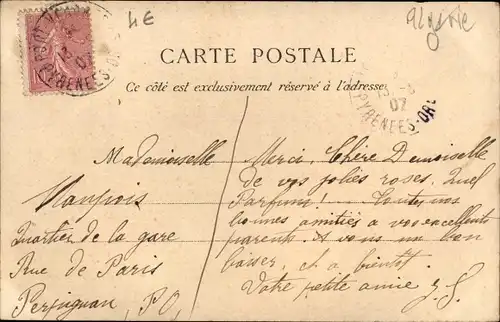 4€
Algérie
PYRENEES-OR
07
CARTE POSTALE
Ce côté est exclusivement réservé à l'adresse
PYRENEES-ORles
Mademoiselle
Quartier de la gare
Rue de Paris
Perpignan, P.O.
Merci, Chère Demoiselle
de vos jolies roses. Quel
Parfum! Toutes nos
bonnes amitiés a vos excellents
parents. A vous un bon
baiser, et a bientôt.
Votre petite amie